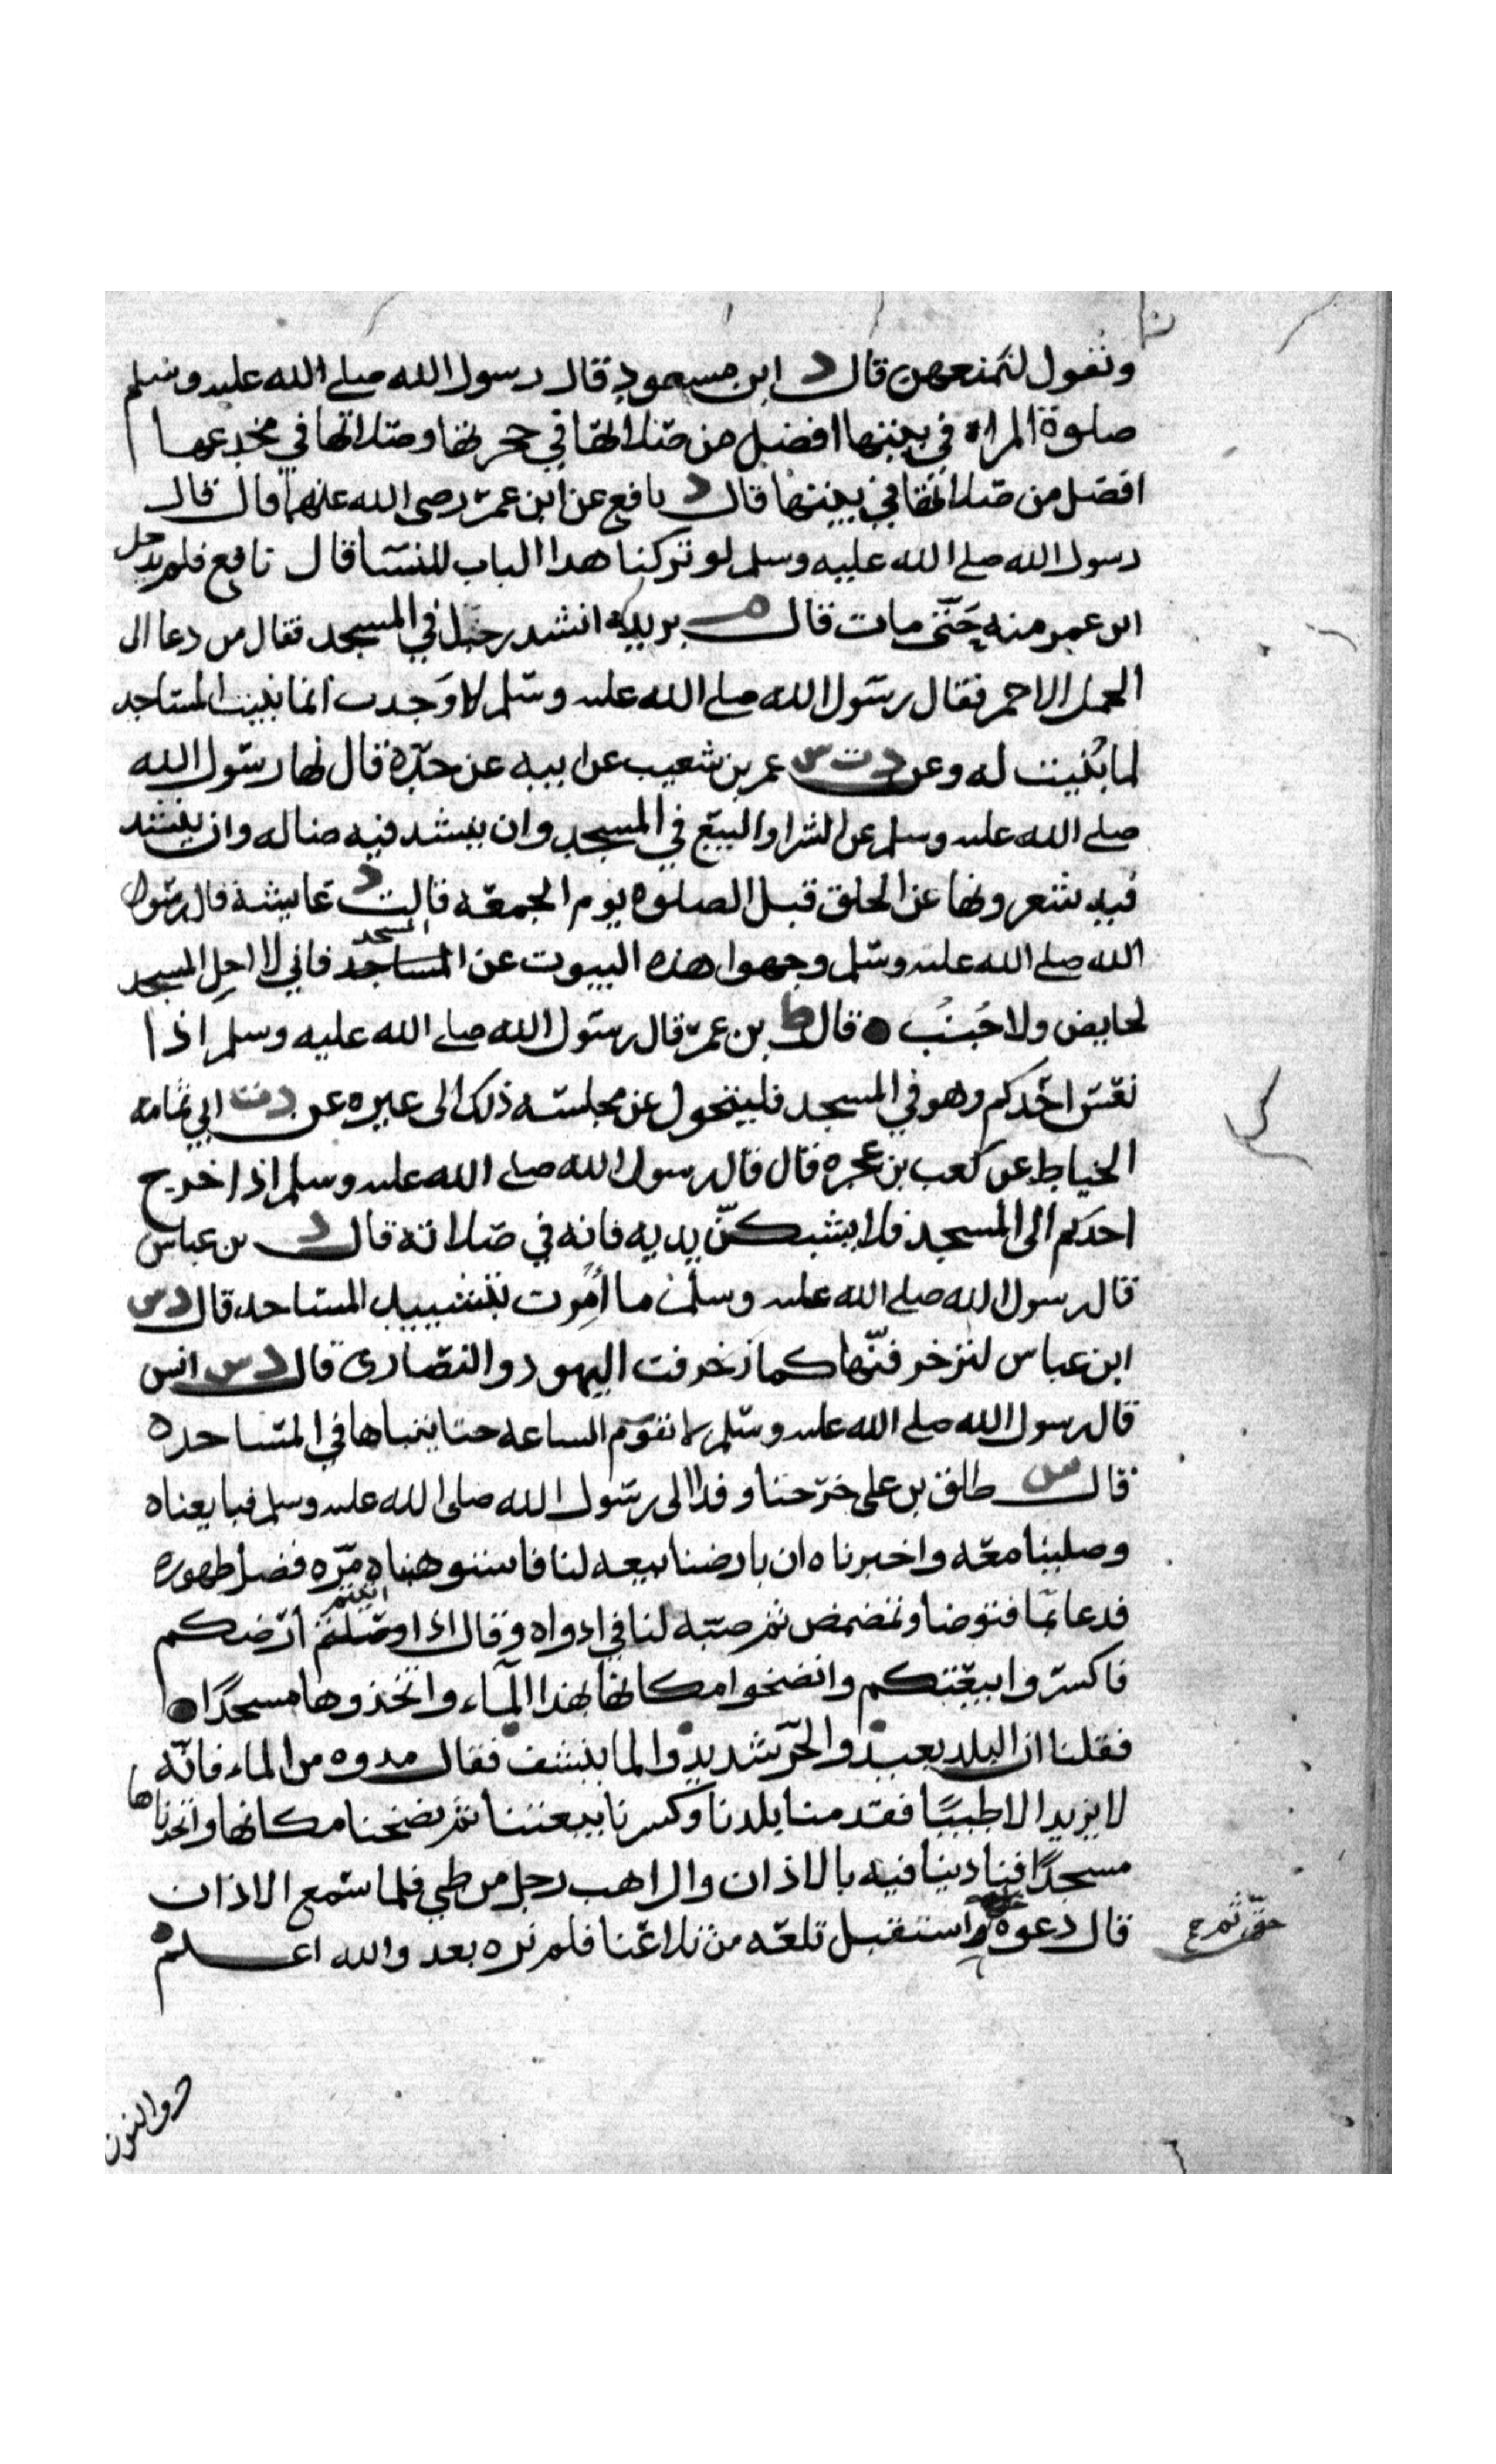 وتقول لنمنعهن قال د ابن مسعود قال رسول الله صلى الله عليه وسلم
صلوة المراة في بيتها افضل من صلاتها في حجرتها وصلاتها في مخدعها
افضل من صلاتها في بيتها قال د نافع عن ابن عمر رضى الله عنهما قال قال
رسول الله صلى الله عليه وسلم لو تركنا هدا الباب للنسا قال نافع فلم يدخل
ابن عمر منه حتى مات قال م بريده انشد رجل في المسجد فقال من دعا الى
الجمل الاحمر فقال رسول الله صلى الله عليه وسلم لا وجدت انما بنيت المساجد
لما بُنيت له وعن د ت س عمر بن شعيب عن ابيه عن جده قال نها رسول الله
صلى الله عليه وسلم عن الشرا والبيع في المسجد وان ينشد فيه ضاله وان ينشد
فيه شعر ونها عن الحلق قبل الصلوه يوم الجمعه قالت د عايشة قال رسول
الله صلى الله عليه وسلم وجهوا هذه البيوت عن المسجد فاني لا احل المسجد
لحايض ولا جُنبُ قال ط بن عمر قال رسول الله صلى الله عليه وسلم اذا
نعس احدكم وهو في المسجد فليتحول عن مجلسه ذلك الى غيره عن د ت ابي ثمامه
الخياط عن كعب بن عجره قال قال رسول الله صلى الله عليه وسلم اذا خرج
احدكم الى المسجد فلا يشبكنّ يديه فانه في صلاته قال د بن عباس
قال رسول الله صلى الله عليه وسلم ما أُمِرت بتشييد المساجد قال د س
ابن عباس لتزخرفنّها كما زخرفت اليهود والنصارى قال د س انس
قال رسول الله صلى الله عليه وسلم لا تقوم الساعه حتا يتباها في المساجد ه
قال س طلق بن على خرجنا وفدا الى رسول الله صلى الله عليه وسلم فبايعناه
وصلينا معه واخبرناه ان بارضنا بيعه لنا فاستوهبناه مره فضل طهوره
فدعا بما فتوضا وتمضمض ثم صبه لنا في ادواه وقال اذا اتيتم ارضكم
فاكسروا بيعتكم وانضخوا مكانها بهذا المآء واتخذوها مسجدًا
فقلنا ان البلد بعيد والحر شديد والما ينشف فقال مدوه من الماء فانه
لا يزيد الا طيبًا فقدمنا بلدنا وكسرنا بيعتنا ثم نضخنا مكانها واتخذناها
مسجدًا فنادينا فيه بالاذان والراهب رجل من طي فلما سمع الاذان
قال دعوه واستقبل تلعه من تلاعنا فلم نره بعد والله اعلم
حق ثم ح
ذوالنون